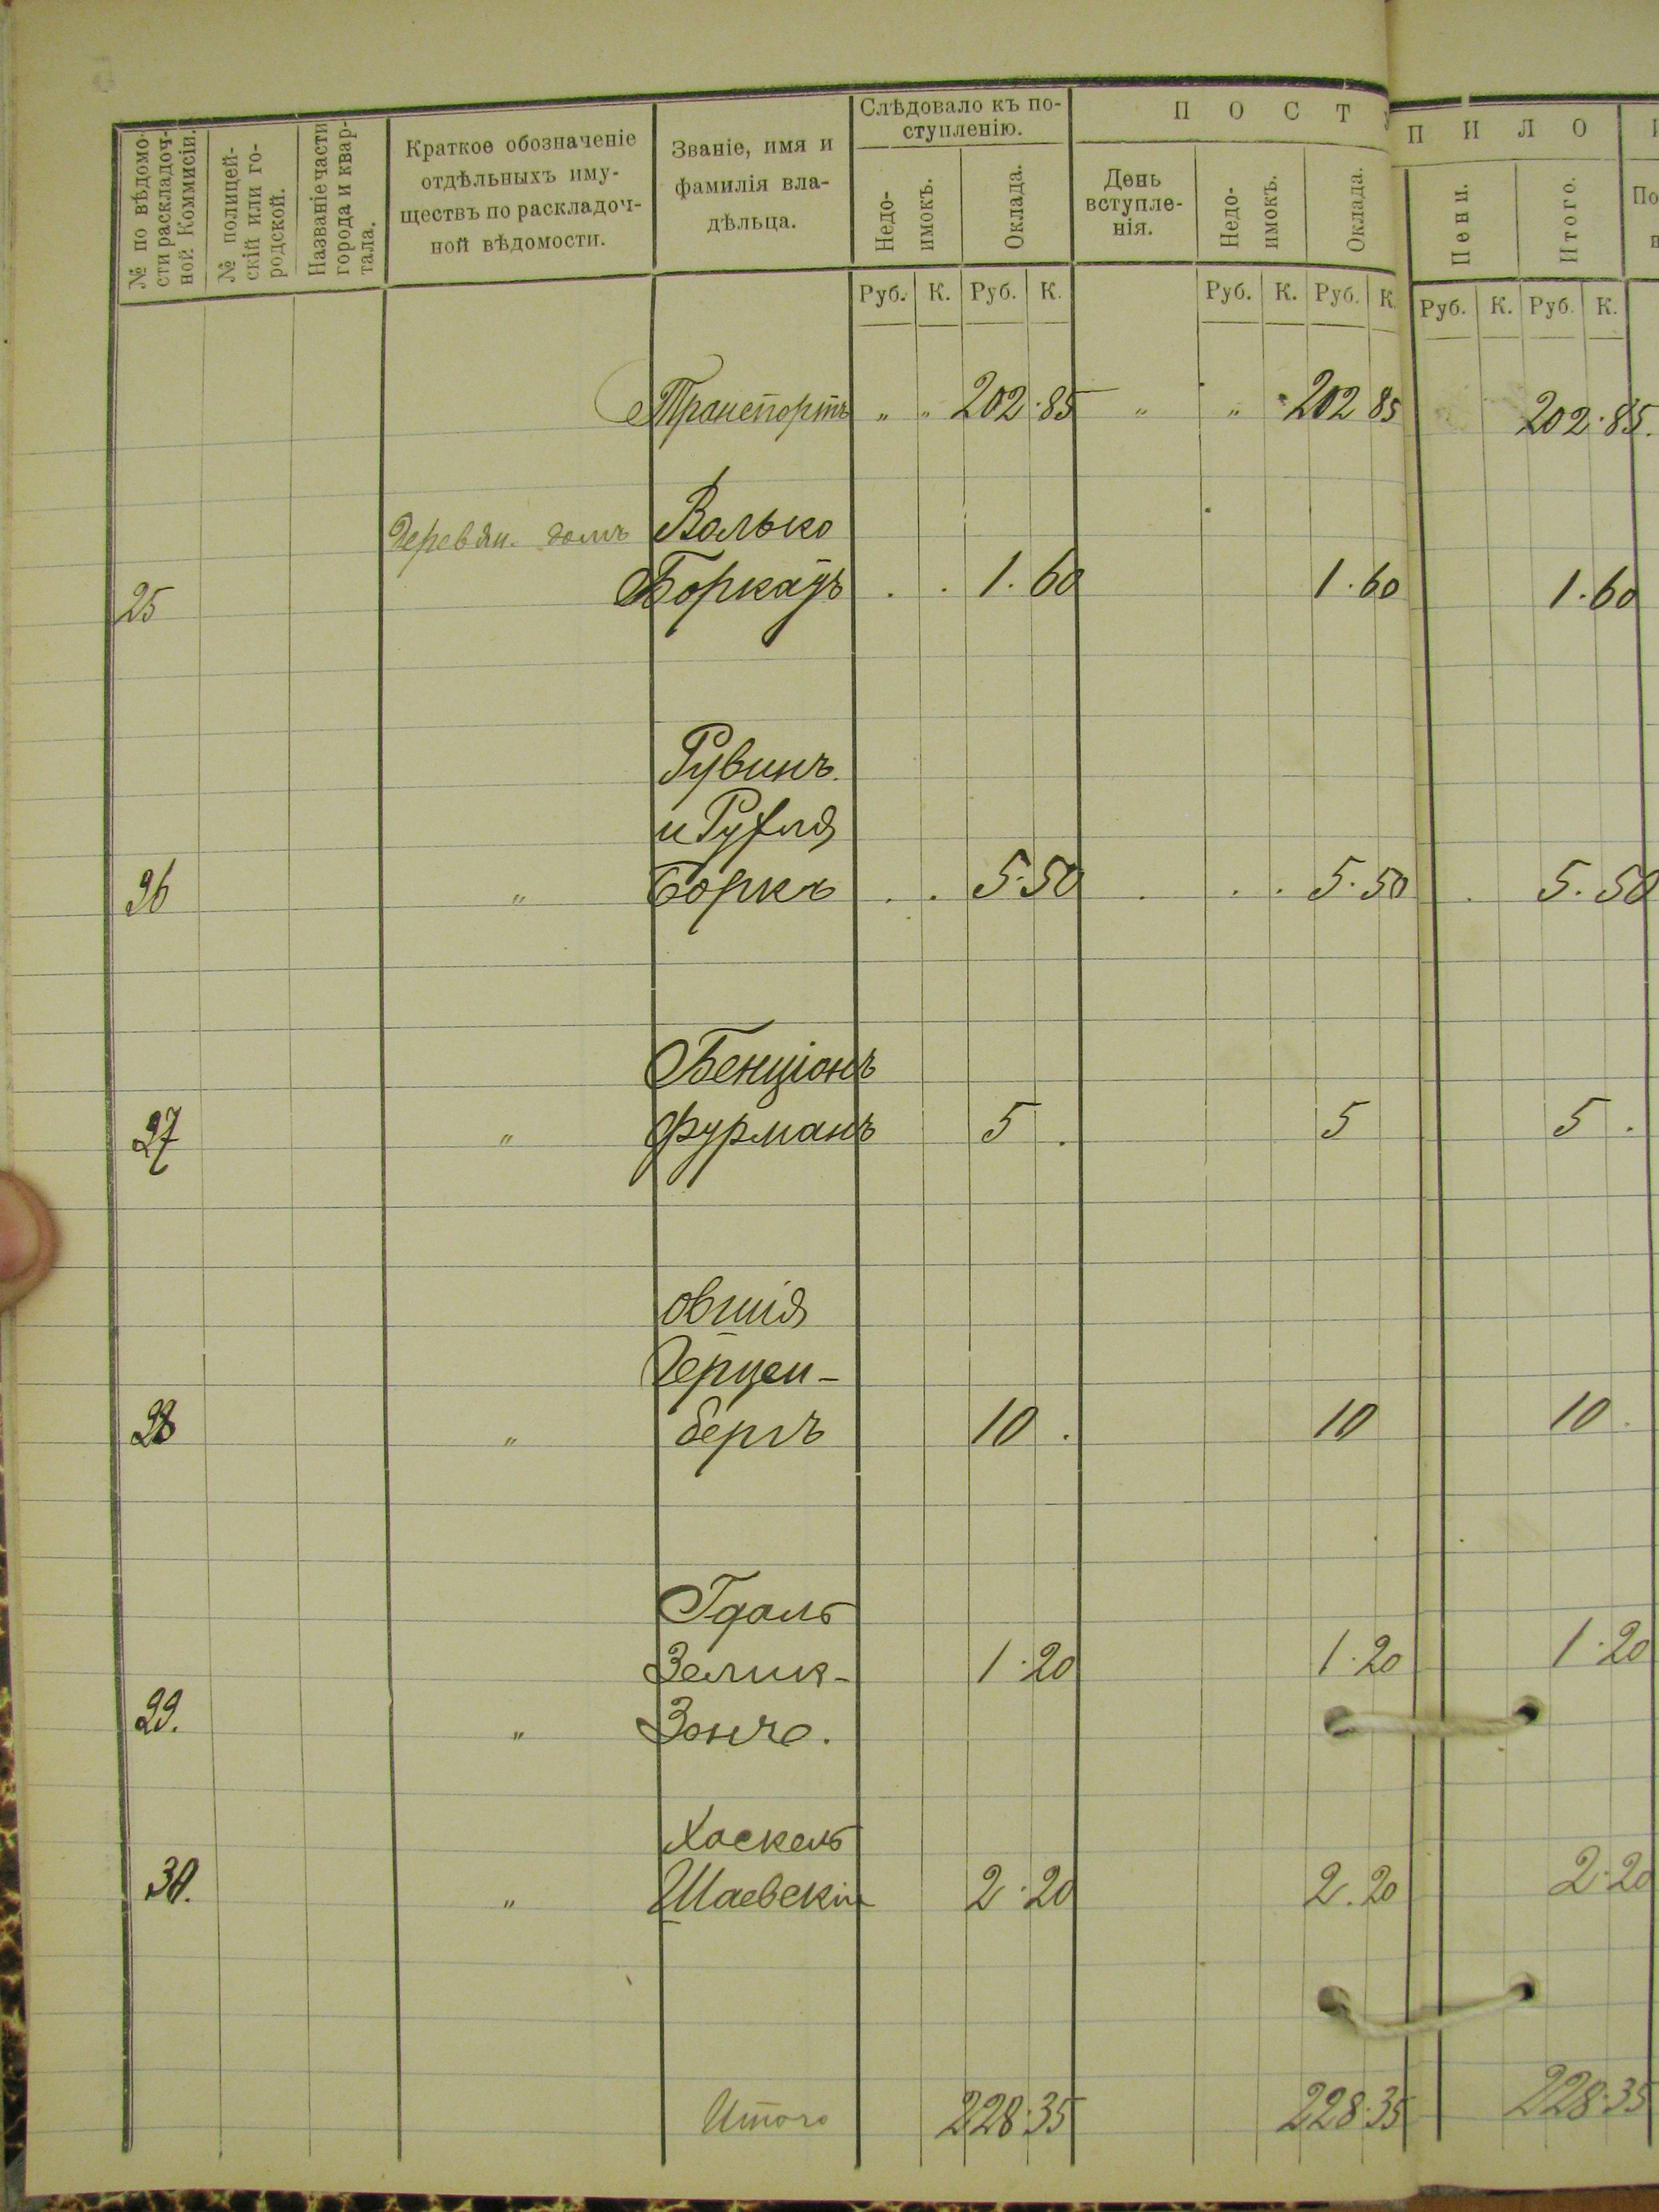 № по вѣдомо-
сти раскладоч-
ной Коммисіи.
№ полицей-
скій или го-
родской.
Названіе части
города и квар-
тала.
Краткое обозначеніе
отдѣльныхъ иму-
ществъ по раскладоч-
ной вѣдомости.
Званіе, имя и
фамилія вла-
дѣльца.
Слѣдовало къ по-
ступленію.
Недо-
имокъ.
Оклада.
П О С Т
П И Л О
День
вступле-
нія.
Недо-
имокъ.
Оклада.
Пени.
Итого.
Руб. К. Руб. К. Руб. К. Руб. К. Руб. К. Руб. К.
Транспортъ " " 202.85 " " 202 85 202.85.
Деревян. домъ Волько
25 1.60 1.60 1.60
Рувинъ
и Рухля
26 " Боркъ . . 5.50 . . . 5.50 . 5.50
Бенціонъ
27 " Фурманъ 5 . 5 5 .
Овшія
Герцен-
28 " бергъ 10 . 10 10 .
Гдаль
Зелик- 1.20 1.20 1.20
29. "
Хаскель
30. " Шаевскій 2.20 2.20 2.20
Итого 228.35 228.35 228.35